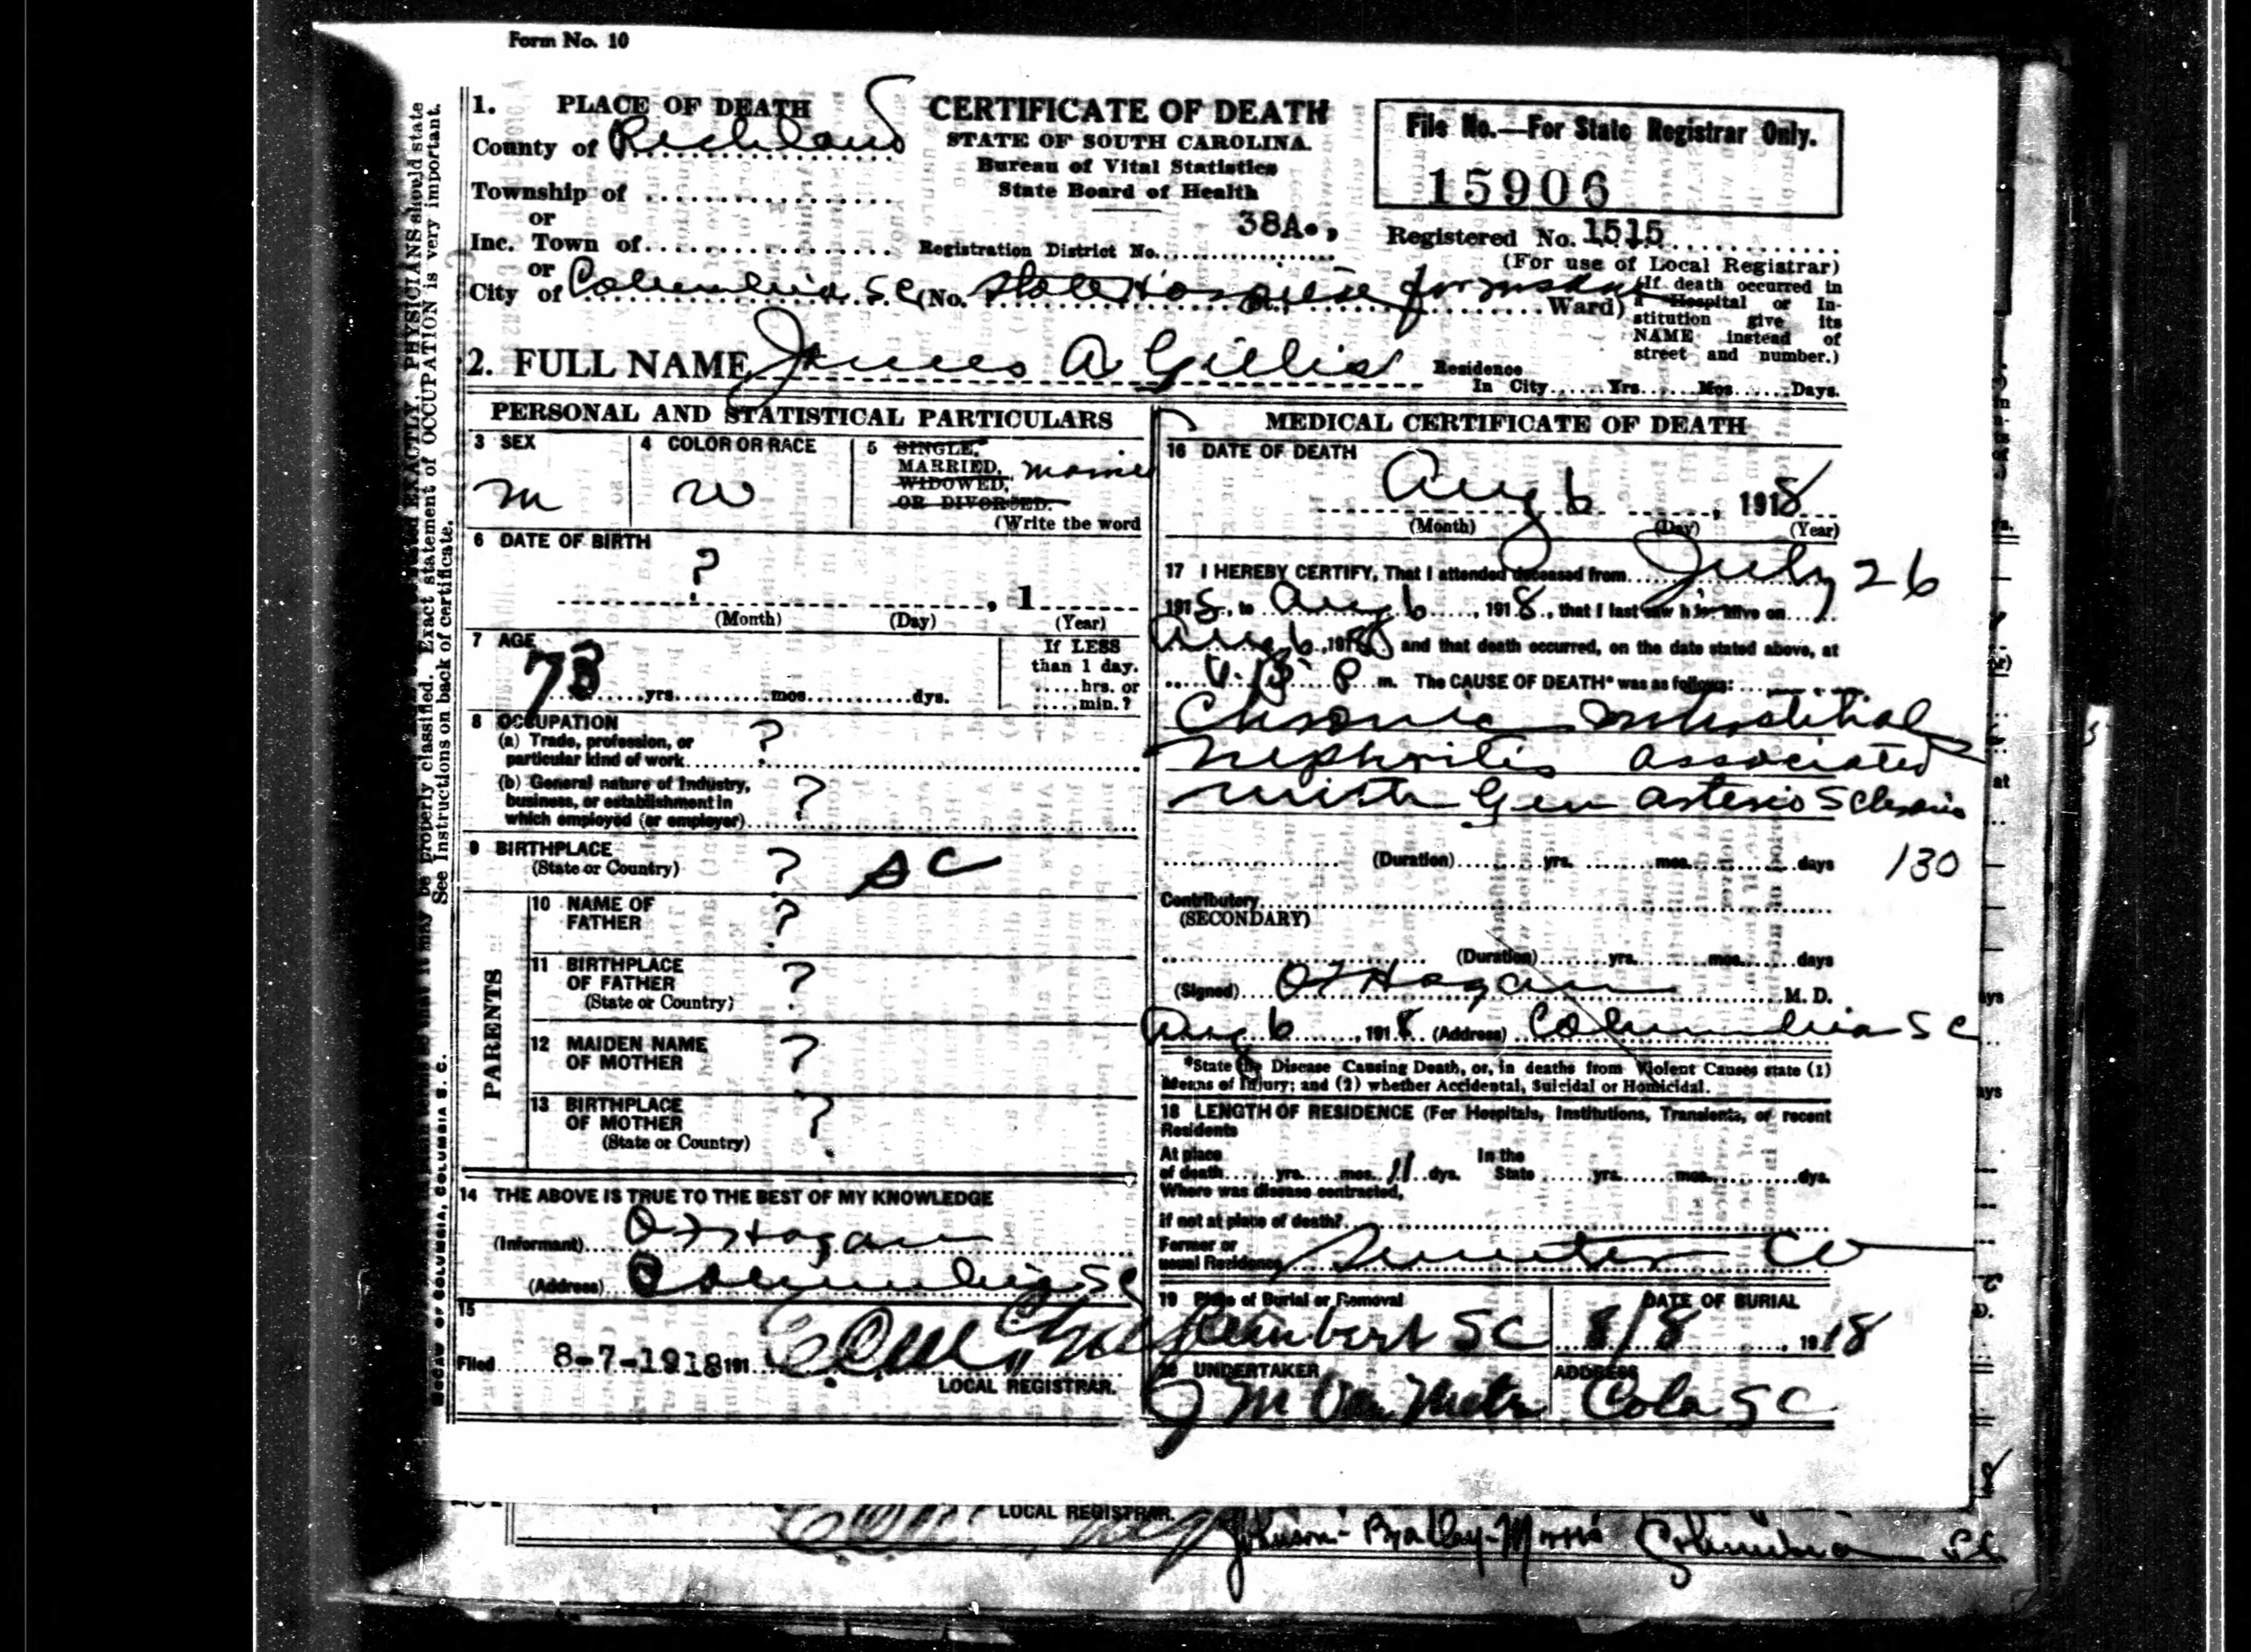 Form No. 10
1. PLACE OF DEATH
County of Richland
Township of
or
Inc. Town of
or
City of Columbia SC (No. State Hospital for Insane St.; Ward)
CERTIFICATE OF DEATH
STATE OF SOUTH CAROLINA.
Bureau of Vital Statistics
State Board of Health
Registration District No. 38A.,
File No.—For State Registrar Only.
15906
Registered No. 1515
(For use of Local Registrar)
(If death occurred in
a Hospital or In-
stitution give its
NAME instead of
street and number.)
2. FULL NAME James A Gillis
Residence
In City Yrs. Mos. Days.
PERSONAL AND STATISTICAL PARTICULARS
3 SEX
m
4 COLOR OR RACE
W
5 SINGLE,
MARRIED,
WIDOWED,
OR DIVORCED.
(Write the word
6 DATE OF BIRTH
?
, 1
(Month) (Day) (Year)
7 AGE
73 yrs. mos. dys.
If LESS
than 1 day.
hrs. or
min.?
8 OCCUPATION
(a) Trade, profession, or
particular kind of work ?
(b) General nature of Industry,
business, or establishment in
which employed (or employer) ?
9 BIRTHPLACE
(State or Country) ? SC
PARENTS
10 NAME OF
FATHER ?
11 BIRTHPLACE
OF FATHER
(State or Country) ?
12 MAIDEN NAME
OF MOTHER ?
13 BIRTHPLACE
OF MOTHER
(State or Country) ?
14 THE ABOVE IS TRUE TO THE BEST OF MY KNOWLEDGE
(Informant) Hogan
(Address) Columbia SC
15
Filed 8-7-1918 191
LOCAL REGISTRAR.
MEDICAL CERTIFICATE OF DEATH
16 DATE OF DEATH
Aug 6, 1918
(Month) (Day) (Year)
17 I HEREBY CERTIFY, That I attended deceased from July 26
1918, to Aug 6, 1918, that I last saw h alive on
Aug 6, 1918 and that death occurred, on the date stated above, at
P m. The CAUSE OF DEATH* was as follows:
Chronic Interstitial
Nephritis associated
with Gen arterio Sclerosis
(Duration) yrs. mos. days 130
Contributory
(SECONDARY)
(Duration) yrs. mos. days
(Signed) Hogan M. D.
Aug 6, 1918 (Address) Columbia SC
*State the Disease Causing Death, or, in deaths from Violent Causes state (1)
Means of Injury; and (2) whether Accidental, Suicidal or Homicidal.
18 LENGTH OF RESIDENCE (For Hospitals, Institutions, Transients, or recent
Residents
At place
of death yrs. mos. 11 dys.
In the
State yrs. mos. dys.
Where was disease contracted,
if not at place of death?
Former or
usual Residence Sumter Co
19 Place of Burial or Removal
Rembert SC
DATE OF BURIAL
8/8, 1918
20 UNDERTAKER
J M Van Metre
ADDRESS
Cola SC
PHYSICIANS should state
Exact statement of OCCUPATION is very important.
See Instructions on back of certificate.
LOCAL REGISTRAR.
Columbia